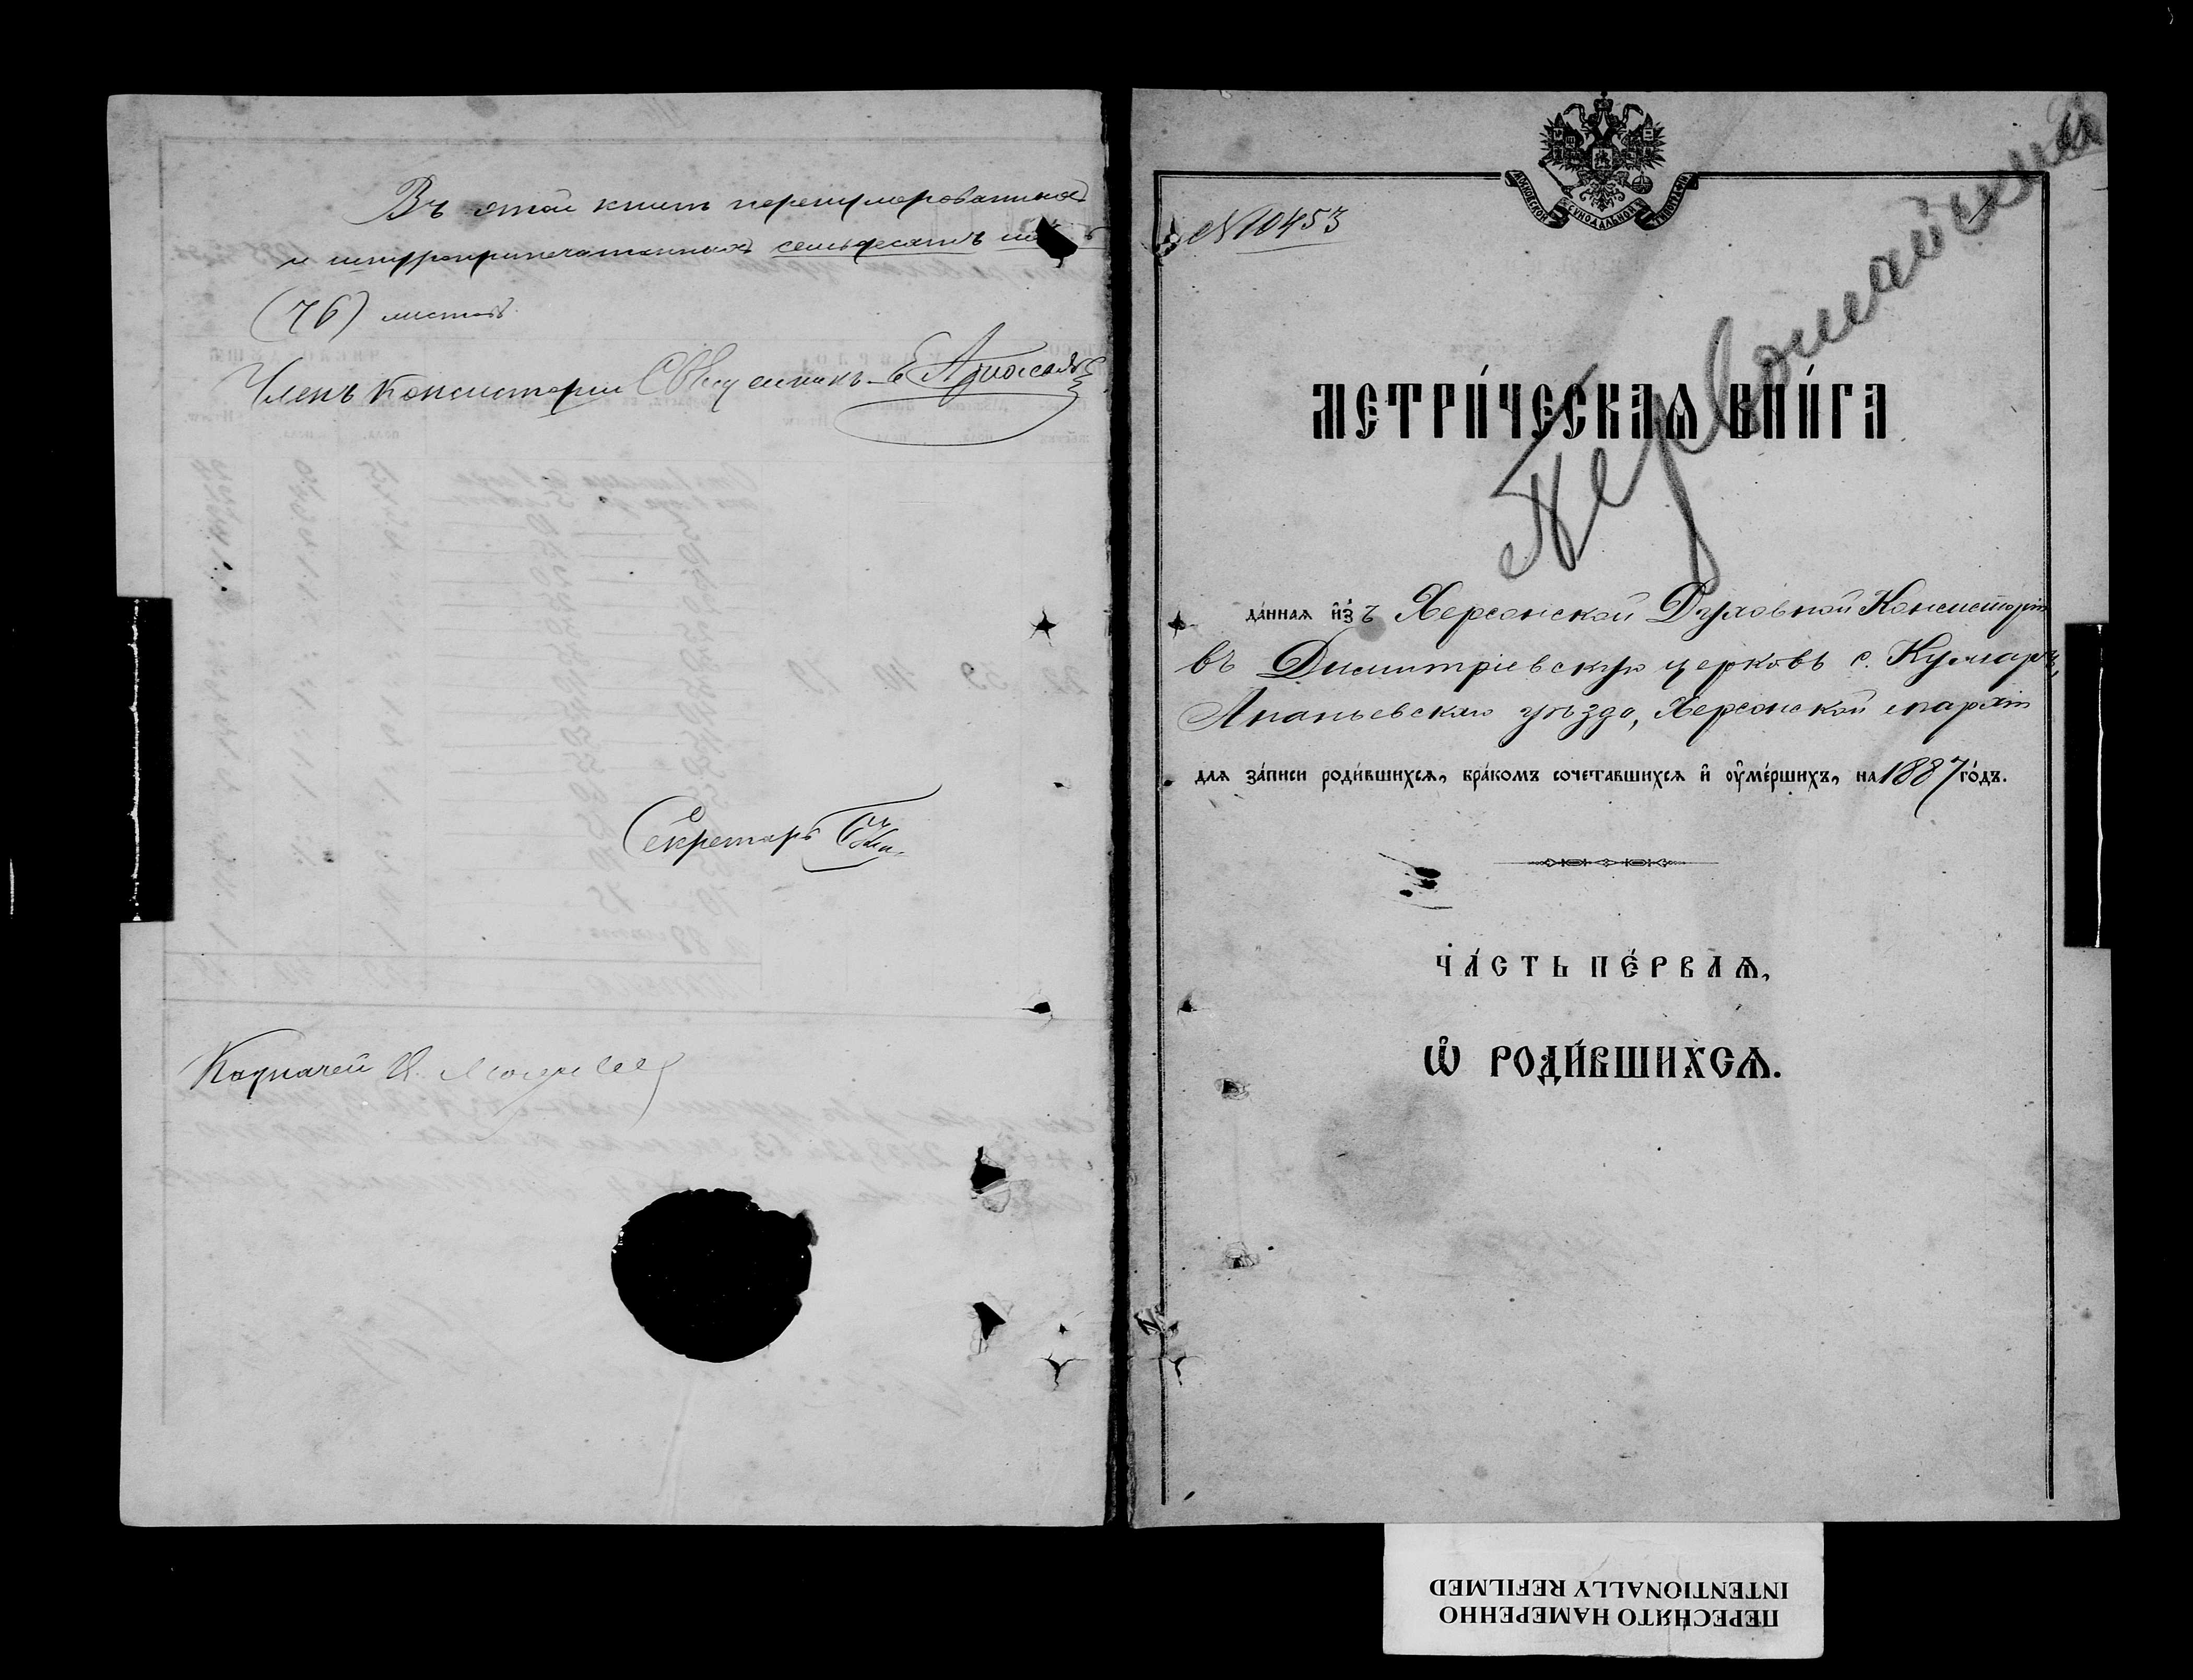 Въ этой книгѣ перенумерованныхъ
и шнуроприпечатанныхъ семьдесятъ
(76) листовъ
Членъ Консисторіи Священникъ
Секретарь
Казначей
МОСКОВСКОЙ СѴНОДАЛЬНОЙ ТИПОГРАФІИ
№ 10453
Первомайский
МЕТРИ́ЧЕСКАѦ КНИ́ГА
да́ннаѧ и҆́зъ Херсонской Духовной Консисторіи
въ Димитріевскую церковь с.
Ананьевскаго уѣзда, Херсонской епархіи
для за́писи роди́вшихсѧ, бра́комъ сочета́вшихсѧ и҆ ѹ҆ме́ршихъ, на 1887 го́дъ.
ЧА́СТЬ ПЕ́РВАѦ,
Ѽ РОДИ́ВШИХСѦ.
ПЕРЕСНЯТО НАМЕРЕННО
INTENTIONALLY REFILMED